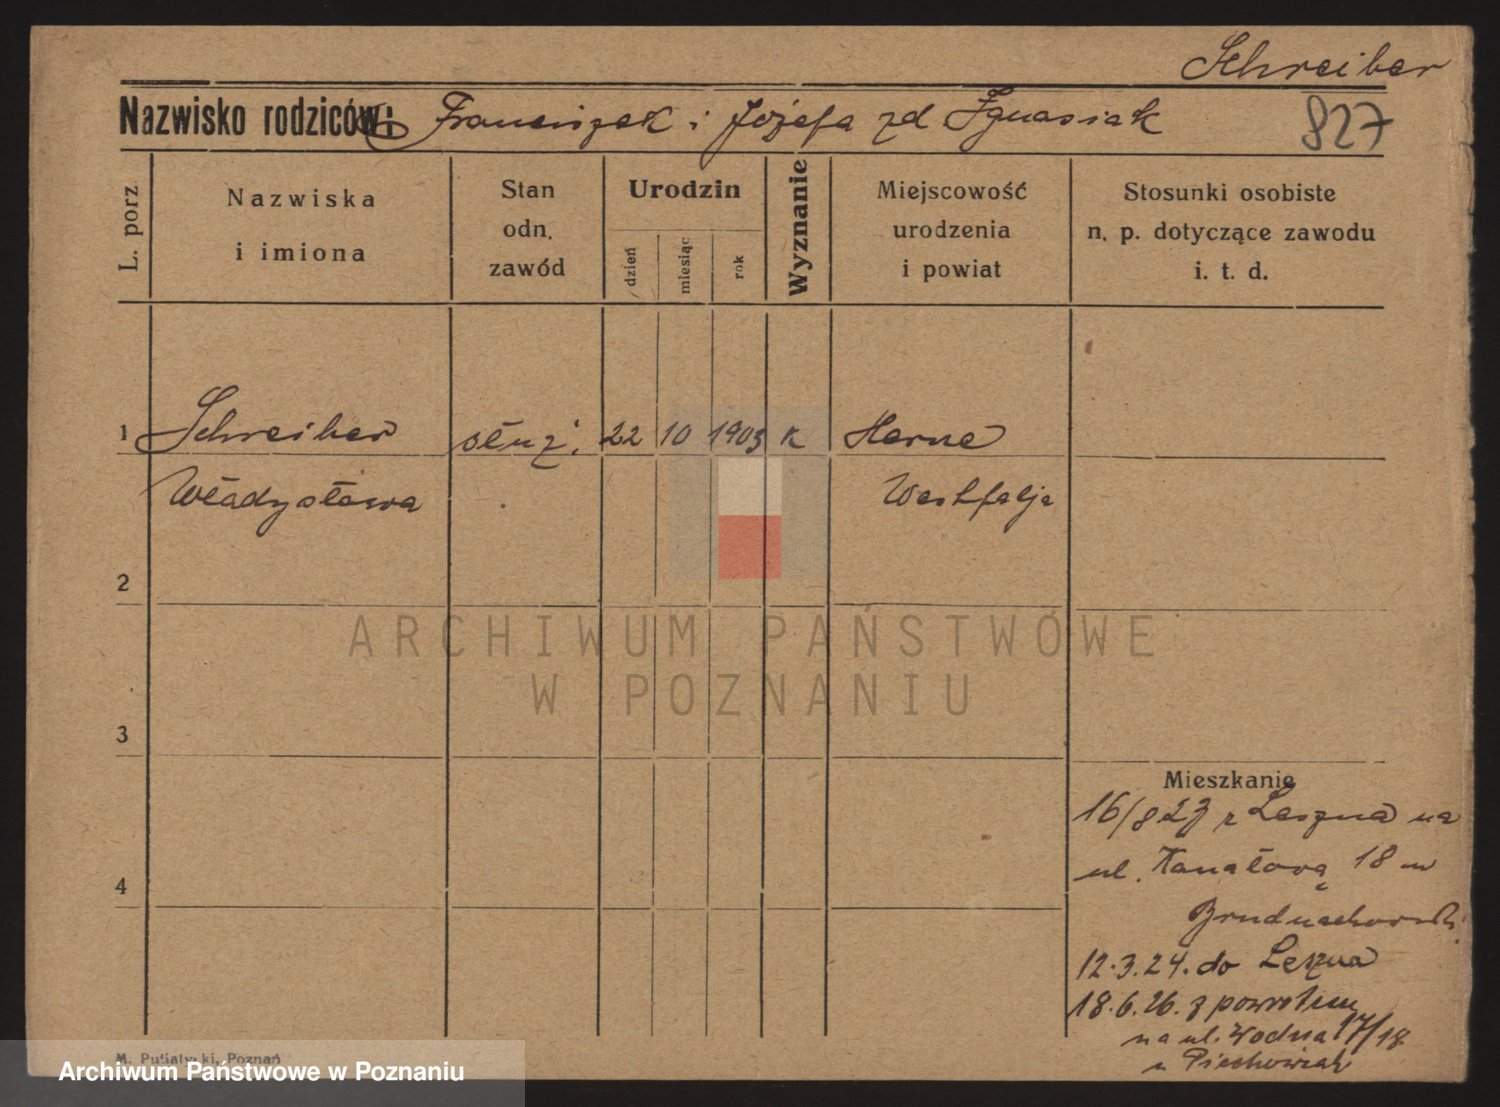 Schreiber
Nazwisko rodziców: Franciszek i Józefa zd Ignasiak 827
L. porz.
Nazwiska
i imiona
Stan
odn.
zawód
Urodzin
dzień
miesiąc
rok
Wyznanie
Miejscowość
urodzenia
i powiat
Stosunki osobiste
n. p. dotyczące zawodu
i. t. d.
1 Schreiber służ. 22 10 1903 k Herne
Władysława Westfalja
2
3
4
Mieszkanie
16/8 23 z Leszna na
ul. Kanałową 18 u
12.3.24. do Leszna
18.6.26. z powrotem
na ul. Wodna 17/18
u Piechowiak
M. Putiatycki, Poznań
ARCHIWUM PAŃSTWOWE
W POZNANIU
Archiwum Państwowe w Poznaniu